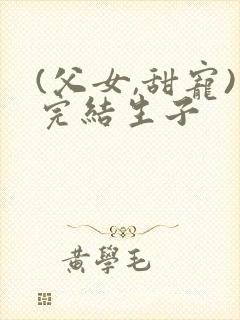 (父女,甜宠)
完結生子
黄學毛